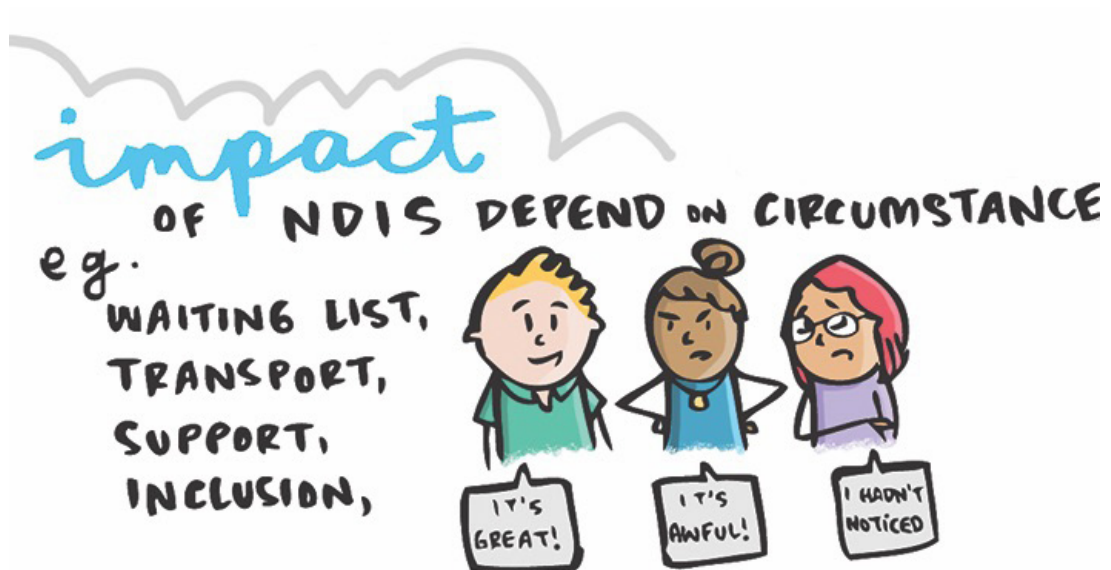 impact
OF NDIS DEPEND ON CIRCUMSTANCE
eg.
WAITING LIST,
TRANSPORT,
SUPPORT,
INCLUSION,
IT'S
GREAT!
IT'S
AWFUL!
I HADN'T
NOTICED